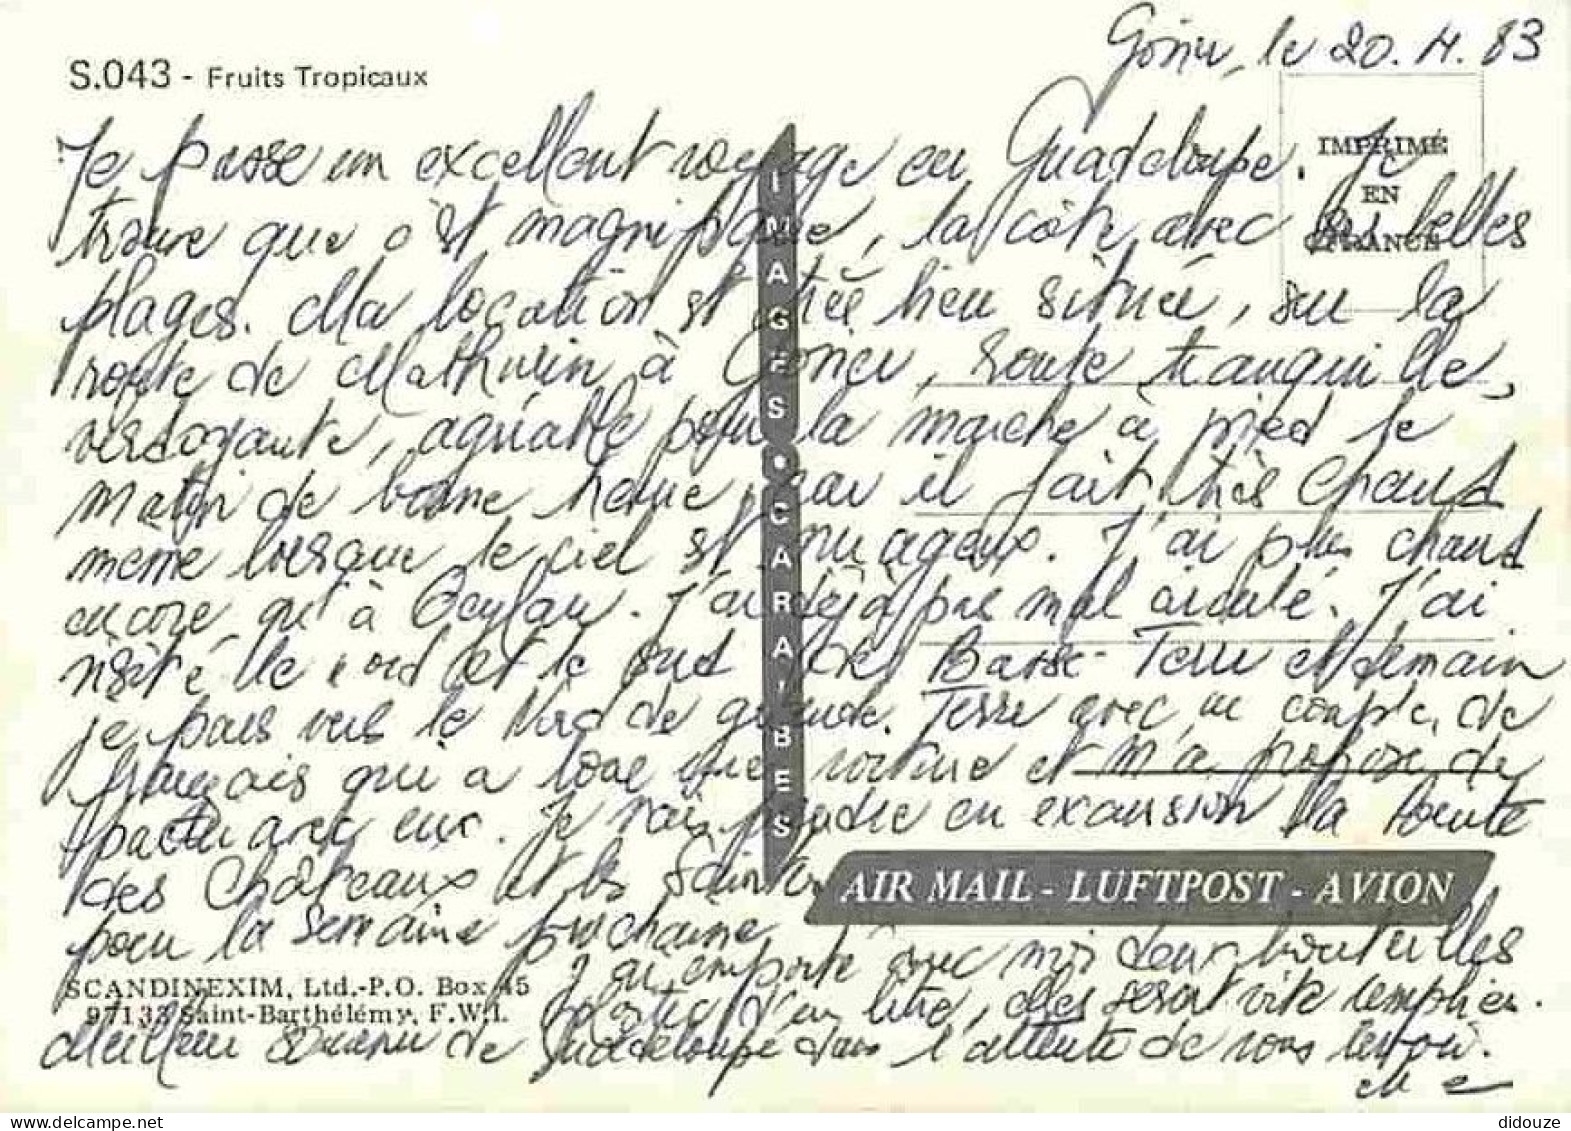 Gosier, le 20.4.83
S.043 - Fruits Tropicaux
IMPRIMÉ
EN
FRANCE
Je passe un excellent voyage en Guadeloupe. Je
trouve que c'est magnifique, la côte avec ses belles
plages. Ma location est très bien située, sur la
route de Mathurin à Gosier, route tranquille,
verdoyante, agréable pour la marche à pied le
matin de bonne heure car il fait très chaud
même lorsque le ciel est nuageux. J'ai plus chaud
encore qu'à Ceylan. J'ai déjà pas mal circulé. J'ai
visité le nord et le sud de Basse-Terre et demain
je pars vers le Nord de grande-Terre avec un couple de
français qui a loué une voiture et m'a proposé de
partir avec eux. Je vais prendre en excursion la Pointe
des Châteaux et les Saintes
pour la semaine prochaine
J'ai emporté avec moi deux bouteilles
plastic d'un litre, elles seront vite remplies.
Meilleur Souvenir de Guadeloupe dans l'attente de vous revoir.
IMAGES • CARAÏBES
AIR MAIL - LUFTPOST - AVION
SCANDINEXIM, Ltd.-P.O. Box 45
97133 Saint-Barthélémy, F.W.I.
didouze